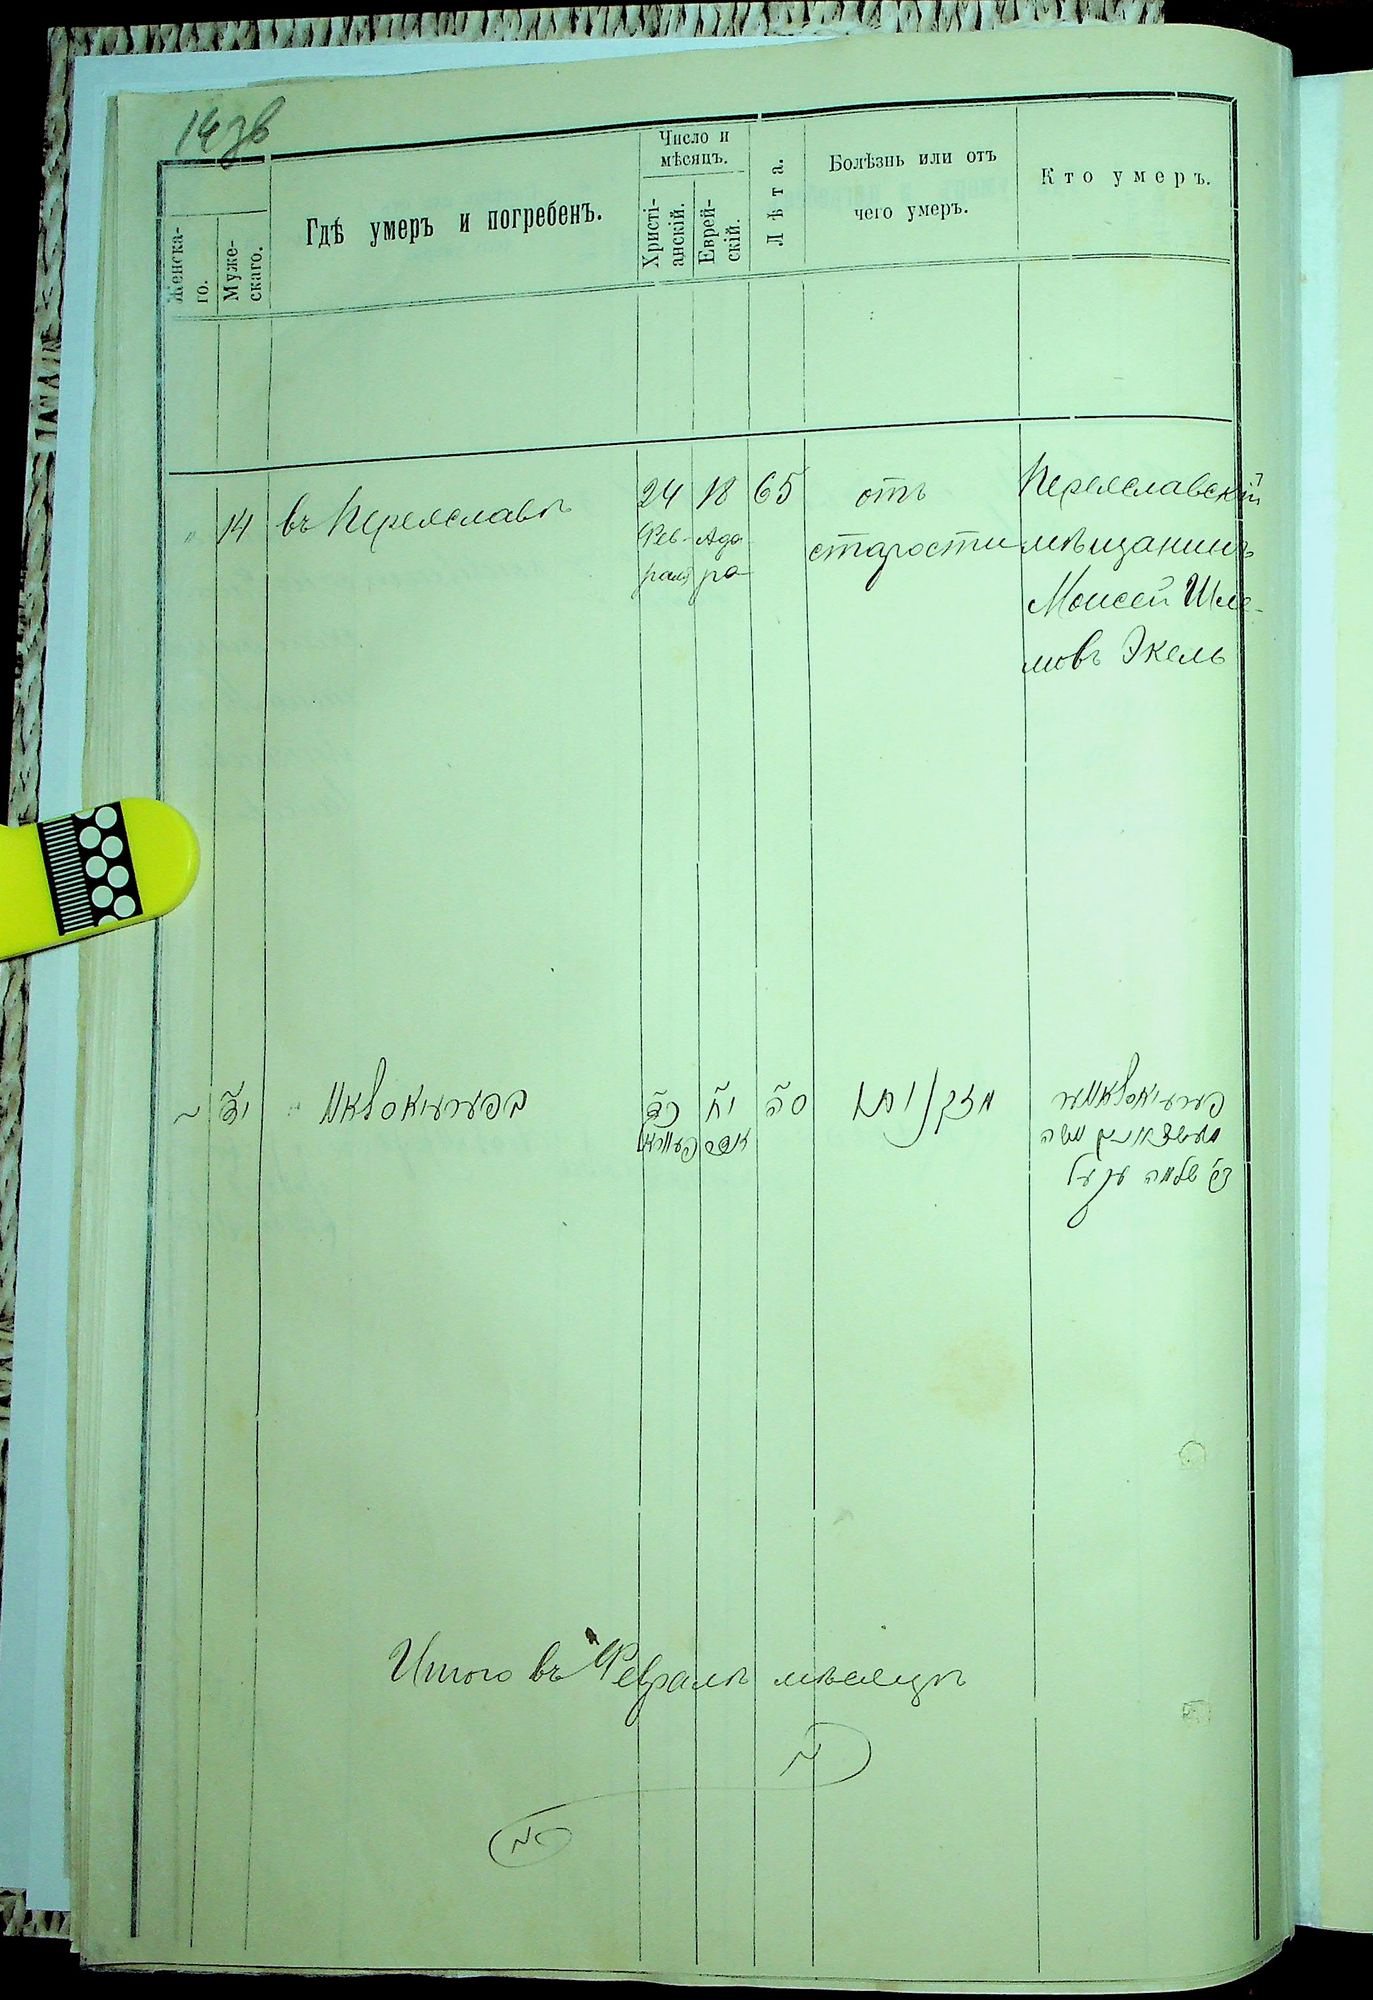 14 зв
Женска-
го.
Муже-
скаго.
Гдѣ умеръ и погребенъ.
Число и
мѣсяцъ.
Христі-
анскій.
Еврей-
скій.
Лѣта.
Болѣзнь или отъ
чего умеръ.
Кто умеръ.
" 14 въ Переяславѣ
24
Фев-
раля
18
Ада
ра
65
отъ
старости
Переяславскій
мѣщанинъ
Моисей Шле-
мовъ Экель
יד
כד
יח
אדר
סה
מזקנות
משה
שלמה עקעל
Итого въ Февралѣ мѣсяцѣ